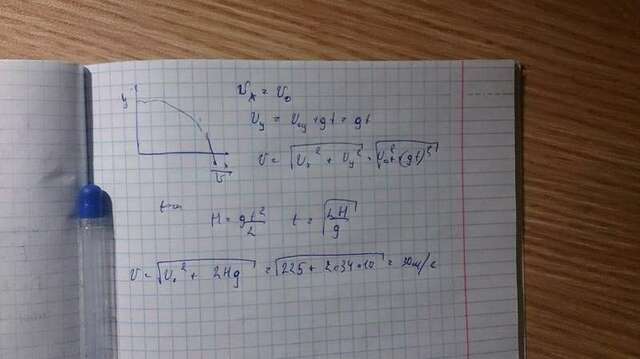 y
x
v
v_x = v_0
v_y = v_{0y} + gt = gt
v = √(v_x² + v_y²) = √(v_0² + (gt)²)
H = gt²/2 t = √(2H/g)
v = √(v_0² + 2Hg) = √(225 + 2·34·10) = 30 м/с